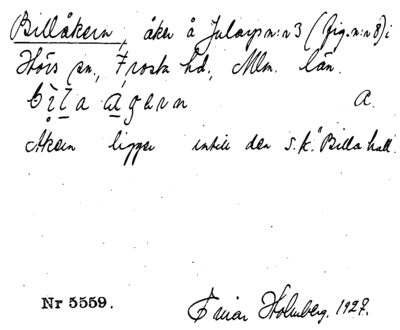 Billåkern, åker å Jularp n:r 3 (fig. n:r 8) i
Hörs sn., Frosta hd., Mlm. län.
bìla ágarn A.
Åkern ligger intill den s.k. "Billa hall".
Nr 5559. Einar Holmberg. 1927.